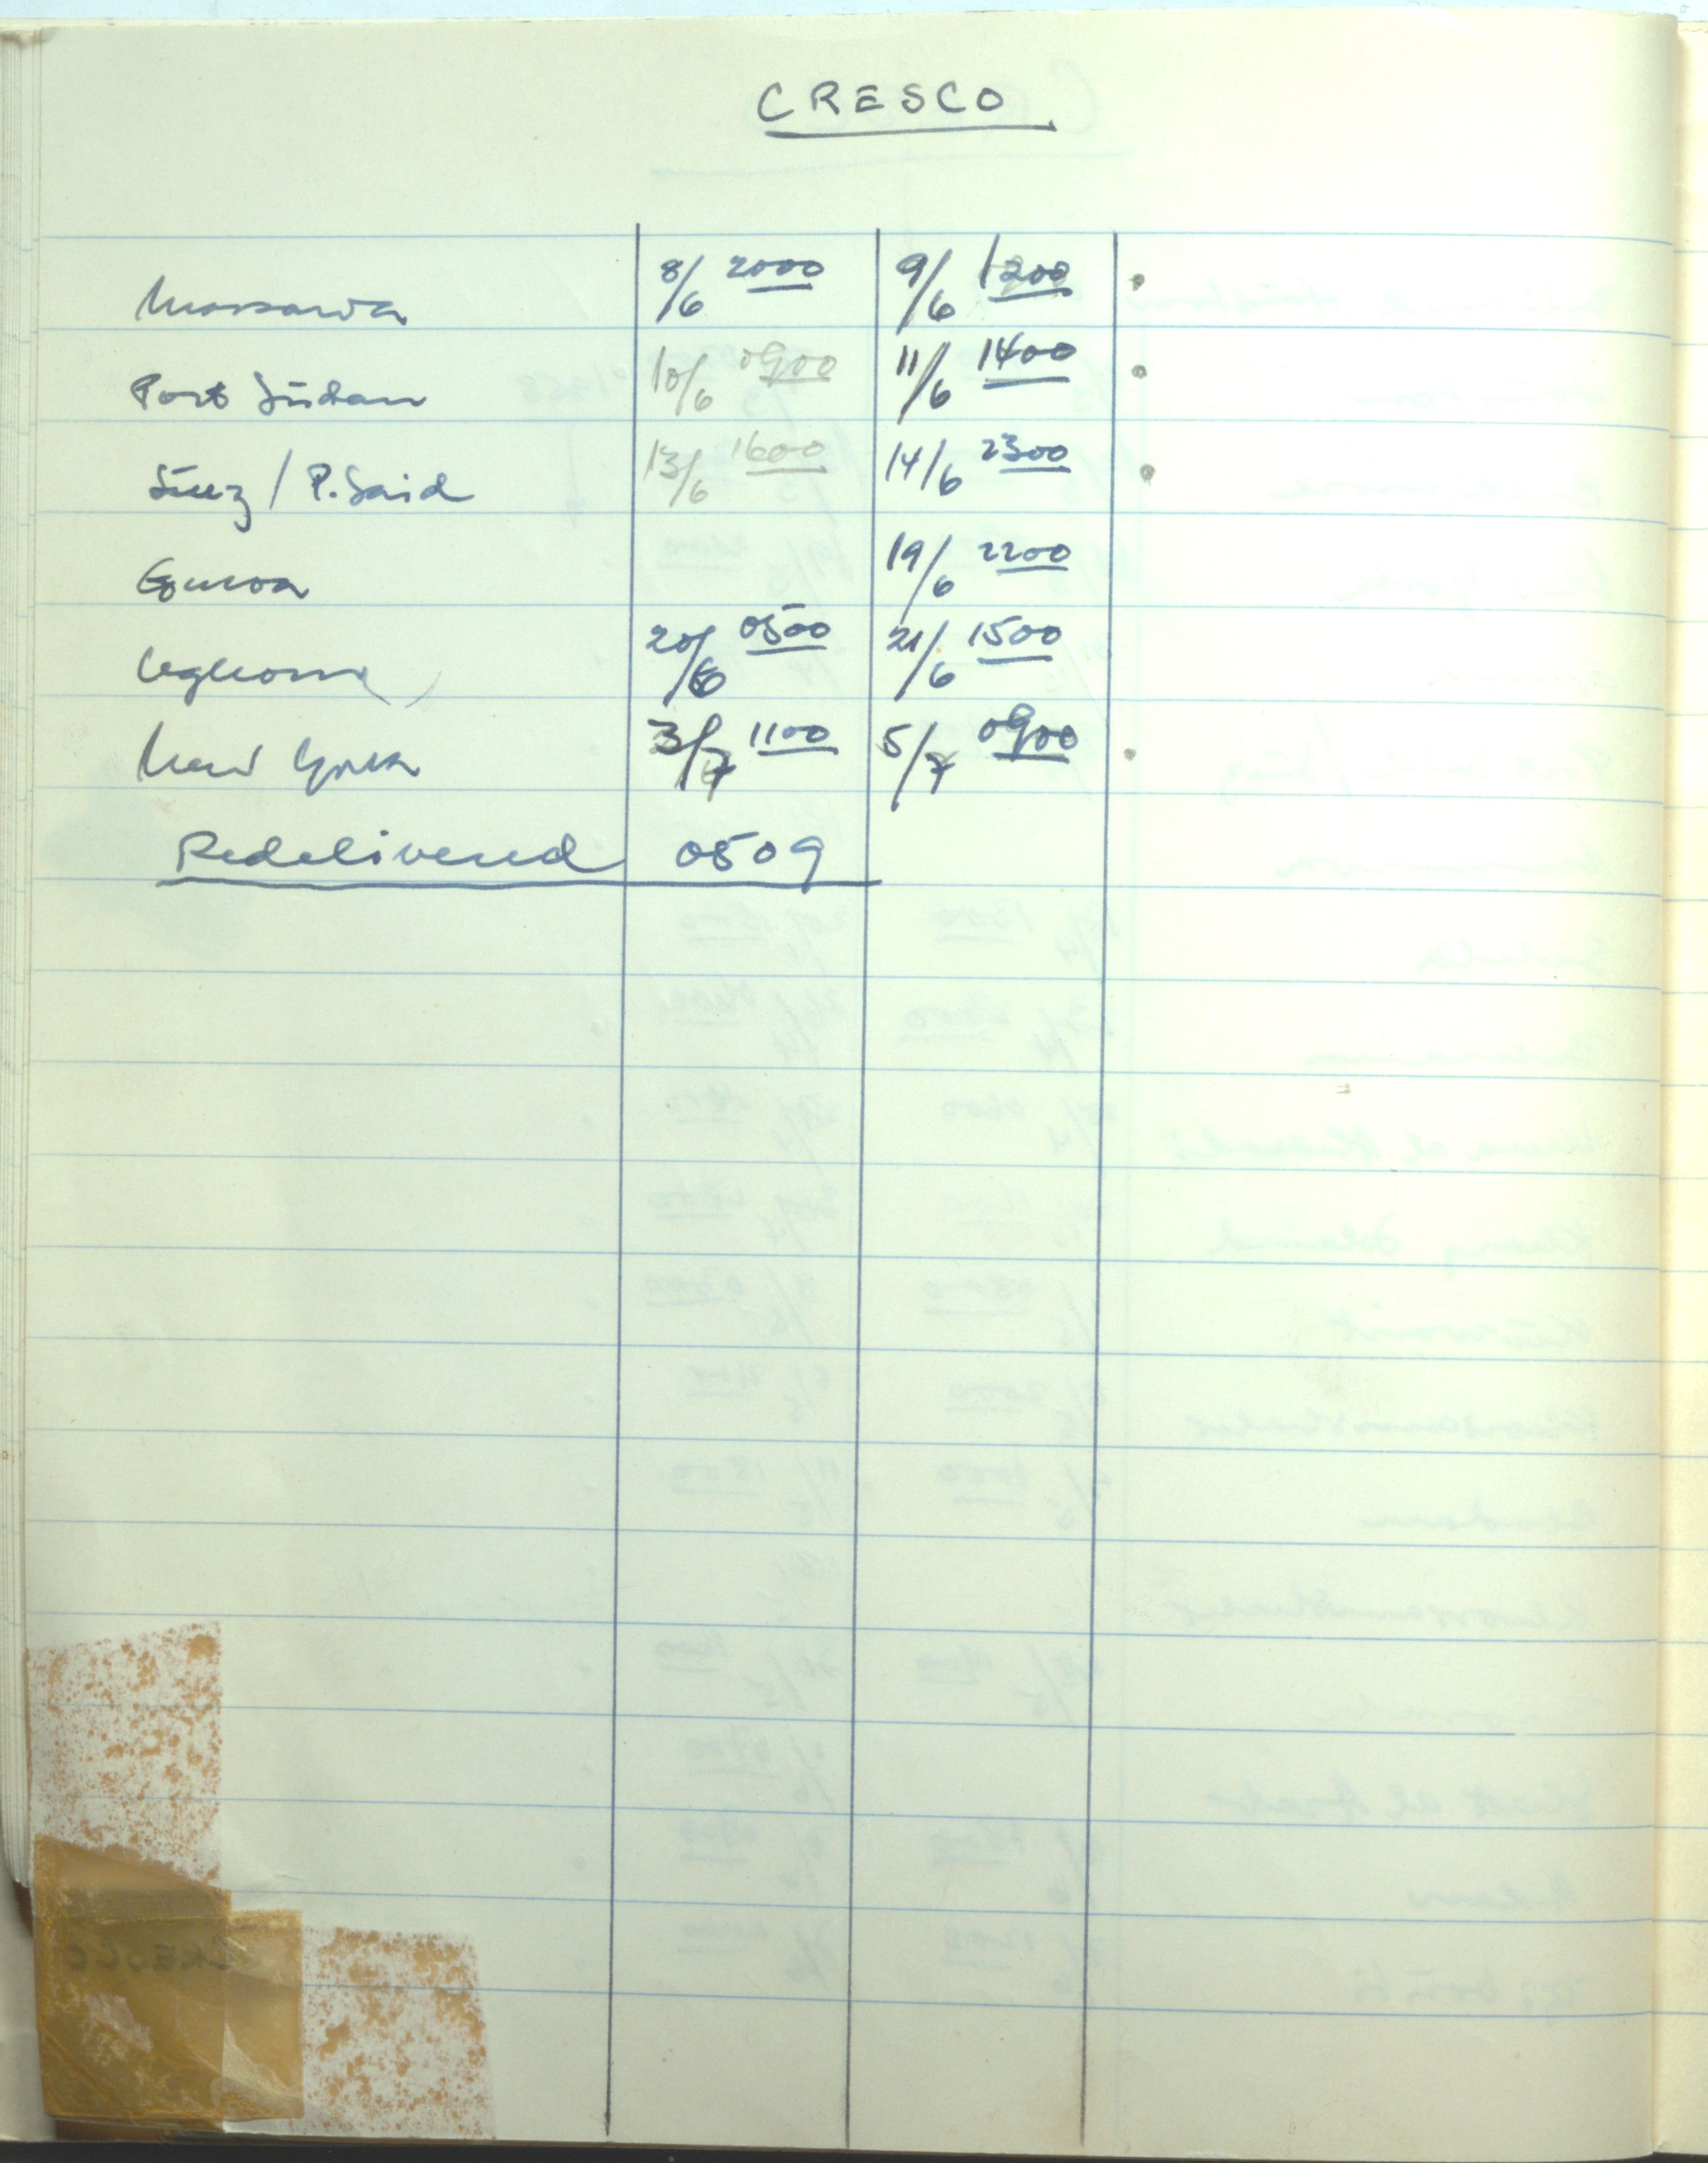 CRESCO
Massawa 8/6 2000 9/6 1200
Port Sudan 10/6 0900 11/6 1400
Suez / P. Said 13/6 1600 14/6 2300
Genoa 19/6 2200
Leghorn 20/6 0500 21/6 1500
New York 3/7 1100 5/7 0900
Redelivered 0509